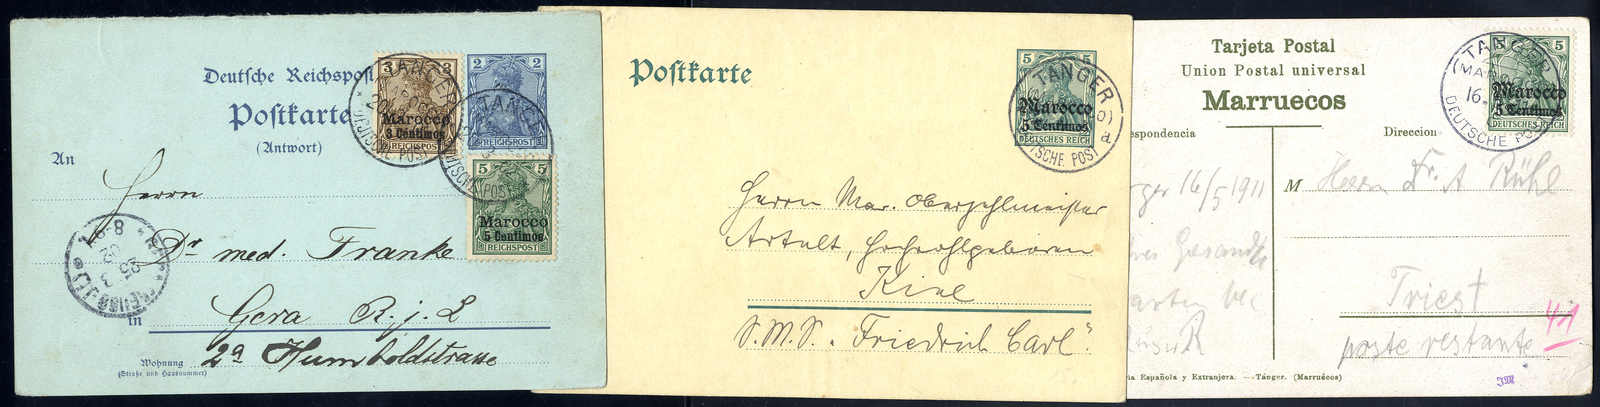 Deutsche Reichspost
Postkarte
(Antwort)
An
3 3
TANGER
DEUTSCHE POST
Marocco
3 Centimos
REICHSPOST
2 2
TANGER
REICHSPOST
5 5
Marocco
5 Centimos
REICHSPOST
Herrn
Dr med. Franke
Gera R. j. L
in
2a Humboldstrasse
Wohnung
(Straße und Hausnummer)
Postkarte
5 5
TANGER
Marocco
5 Centimos
DEUTSCHES REICH
a
Herrn Mar. Oberzahlmeister
Kiel
S.M.S. "Friedrich Carl"
Tarjeta Postal
Union Postal universal
Marruecos
5 5
TANGER
16.
DEUTSCHE POST
Marocco
5 Centimos
DEUTSCHES REICH
respondencia
Direccion
16/5 1911
M Herrn Dr. A Rühl
Triest
41
poste restante
ia Española y Extranjera. — Tánger. (Marruécos)